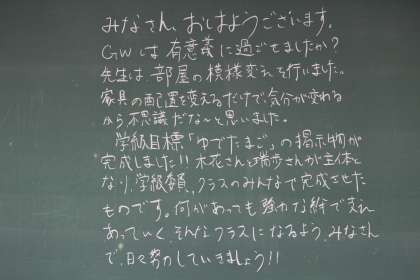 みなさん、おはようございます。
GWは有意義に過ごせましたか？
先生は、部屋の模様変えを行いました。
家具の配置を変えるだけで、気分が変わる
から不思議だな〜と思いました。
学級目標「ゆでたまご」の掲示物が
完成しました!! 木花さんと瑞歩さんが主体と
なり、学級額、クラスのみんなで完成させた
ものです。何があっても強力な絆で支え
あっていく、そんなクラスになるよう、みなさん
で、日々努力していきましょう!!